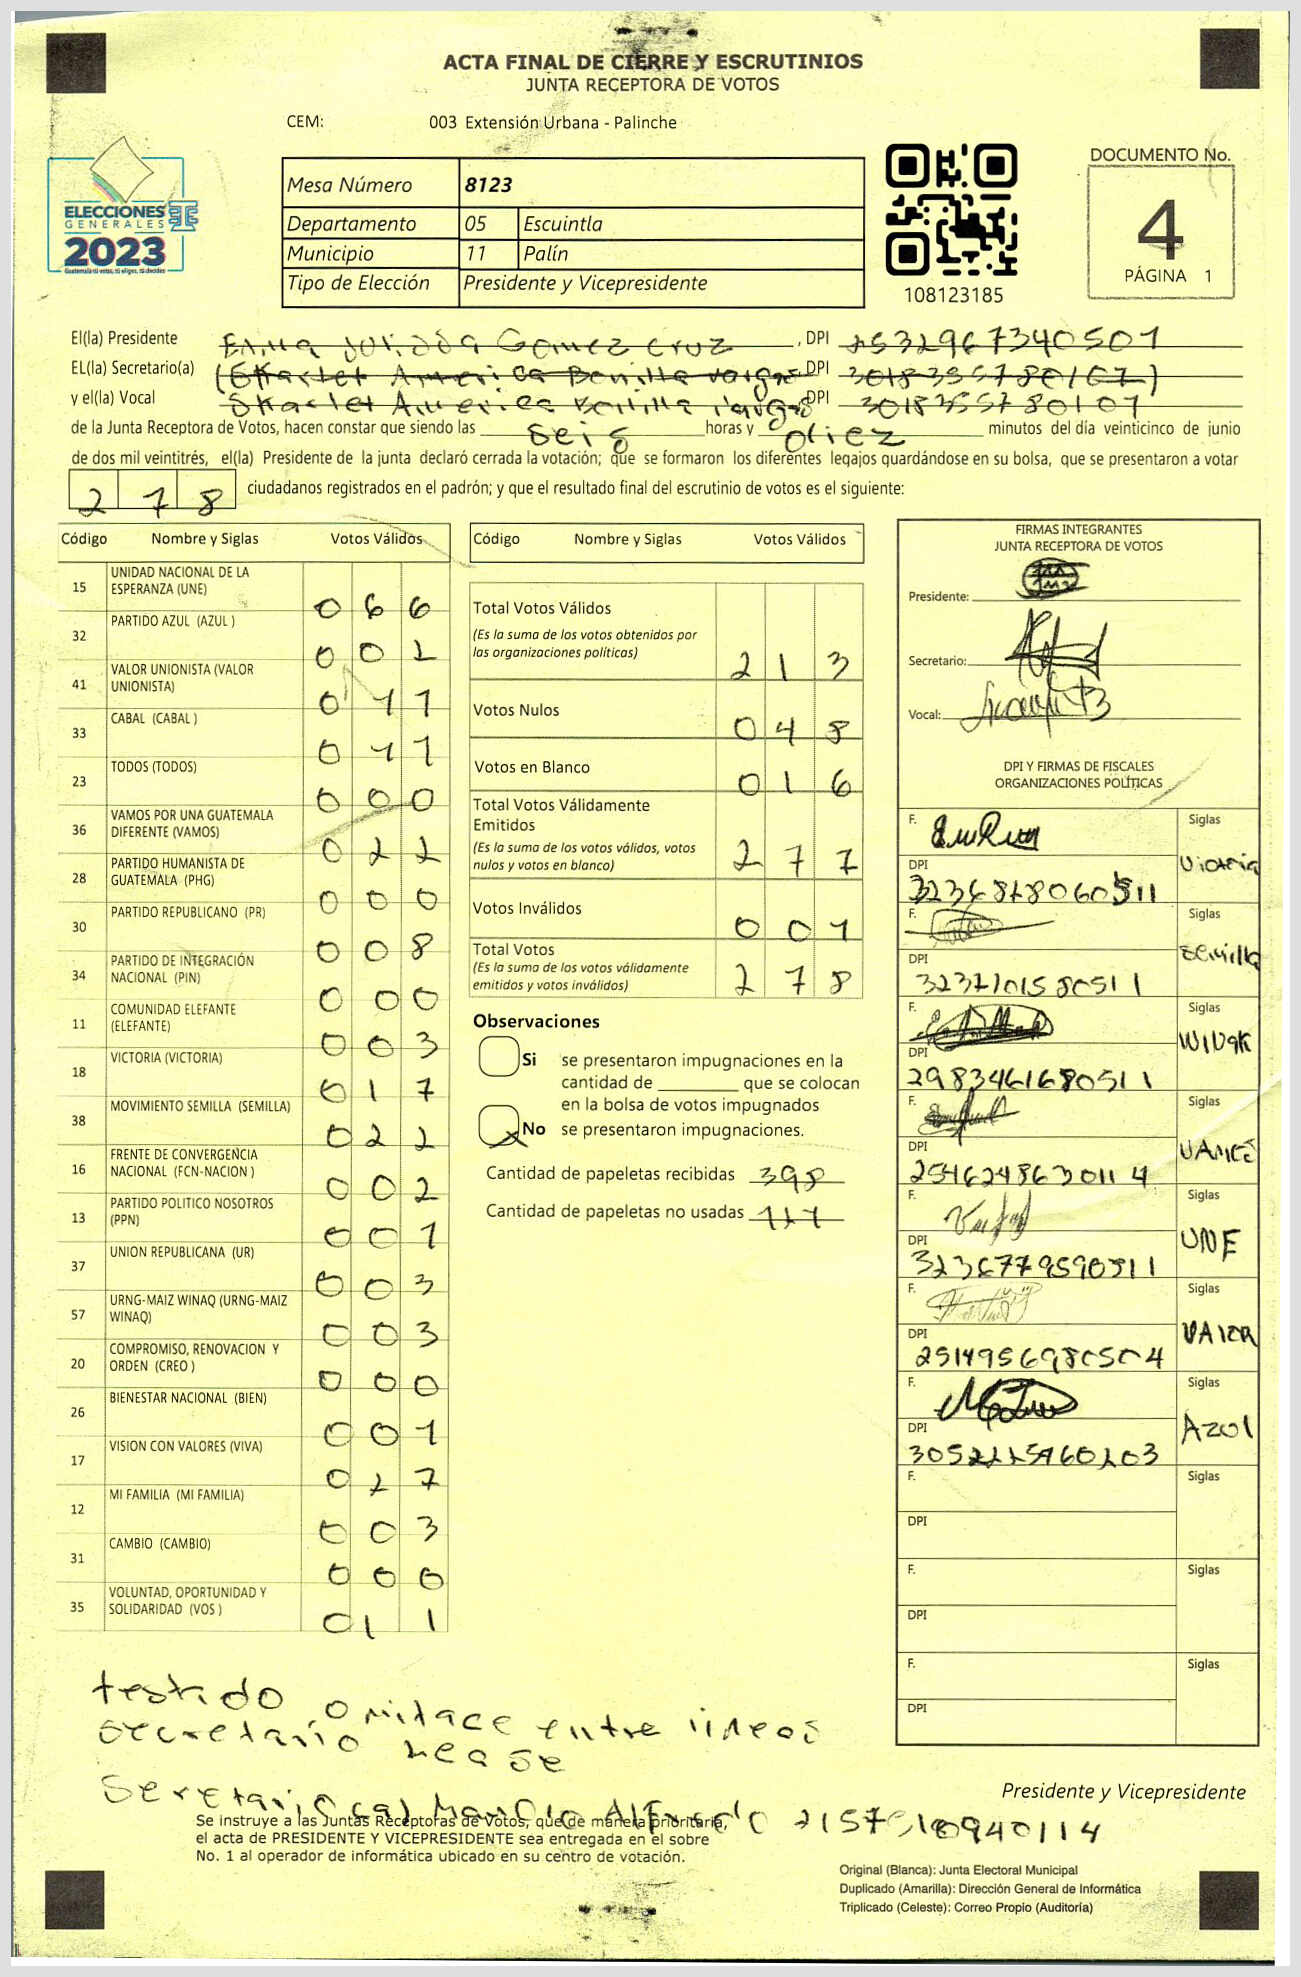 ACTA FINAL DE CIERRE Y ESCRUTINIOS
JUNTA RECEPTORA DE VOTOS
CEM: 003 Extensión Urbana - Palinche
ELECCIONES
GENERALES
2023
Guatemala tú votas, tú eliges, tú decides
Mesa Número 8123
Departamento 05 Escuintla
Municipio 11 Palín
Tipo de Elección Presidente y Vicepresidente
108123185
DOCUMENTO No.
4
PÁGINA 1
El(la) Presidente Gomez Cruz, DPI 2532967340501
EL(la) Secretario(a) (Skarlet America Bonilla Vargas, DPI 3018355780107)
y el(la) Vocal Skarlet America Bonilla Vargas DPI 3018355780107
de la Junta Receptora de Votos, hacen constar que siendo las seis horas y diez minutos del día veinticinco de junio
de dos mil veintitrés, el(la) Presidente de la junta declaró cerrada la votación; que se formaron los diferentes legajos guardándose en su bolsa, que se presentaron a votar
278 ciudadanos registrados en el padrón; y que el resultado final del escrutinio de votos es el siguiente:
Código Nombre y Siglas Votos Válidos
15 UNIDAD NACIONAL DE LA
ESPERANZA (UNE) 066
32 PARTIDO AZUL (AZUL ) 002
41 VALOR UNIONISTA (VALOR
UNIONISTA) 011
33 CABAL (CABAL ) 011
23 TODOS (TODOS) 000
36 VAMOS POR UNA GUATEMALA
DIFERENTE (VAMOS) 022
28 PARTIDO HUMANISTA DE
GUATEMALA (PHG) 000
30 PARTIDO REPUBLICANO (PR) 008
34 PARTIDO DE INTEGRACIÓN
NACIONAL (PIN) 000
11 COMUNIDAD ELEFANTE
(ELEFANTE) 003
18 VICTORIA (VICTORIA) 017
38 MOVIMIENTO SEMILLA (SEMILLA) 022
16 FRENTE DE CONVERGENCIA
NACIONAL (FCN-NACION ) 002
13 PARTIDO POLITICO NOSOTROS
(PPN) 001
37 UNION REPUBLICANA (UR) 003
57 URNG-MAIZ WINAQ (URNG-MAIZ
WINAQ) 003
20 COMPROMISO, RENOVACION Y
ORDEN (CREO ) 000
26 BIENESTAR NACIONAL (BIEN) 001
17 VISION CON VALORES (VIVA) 027
12 MI FAMILIA (MI FAMILIA) 003
31 CAMBIO (CAMBIO) 000
35 VOLUNTAD, OPORTUNIDAD Y
SOLIDARIDAD (VOS ) 011
Código Nombre y Siglas Votos Válidos
Total Votos Válidos
(Es la suma de los votos obtenidos por
las organizaciones políticas) 213
Votos Nulos 048
Votos en Blanco 016
Total Votos Válidamente
Emitidos
(Es la suma de los votos válidos, votos
nulos y votos en blanco) 277
Votos Inválidos 001
Total Votos
(Es la suma de los votos válidamente
emitidos y votos inválidos) 278
Observaciones
Si se presentaron impugnaciones en la
cantidad de ________ que se colocan
en la bolsa de votos impugnados
No se presentaron impugnaciones.
Cantidad de papeletas recibidas 398
Cantidad de papeletas no usadas
FIRMAS INTEGRANTES
JUNTA RECEPTORA DE VOTOS
Presidente:
Secretario:
Vocal:
DPI Y FIRMAS DE FISCALES
ORGANIZACIONES POLÍTICAS
F. Siglas
Victoria
DPI
F. Siglas
Semilla
DPI
3237101580511
F. Siglas
WINAK
DPI
2983461680511
F. Siglas
VAMOS
DPI
2546248630114
F. Siglas
UNE
DPI
3236779590511
F. Siglas
VALOR
DPI
2514956980504
F. Siglas
Azul
DPI
F. Siglas
DPI
F. Siglas
DPI
F. Siglas
DPI
testado omitace entre lineas
secretario Lease
Secretario (a) Alfredo
Se instruye a las Juntas Receptoras de Votos, que de manera prioritaria,
el acta de PRESIDENTE Y VICEPRESIDENTE sea entregada en el sobre
No. 1 al operador de informática ubicado en su centro de votación.
Presidente y Vicepresidente
Original (Blanca): Junta Electoral Municipal
Duplicado (Amarilla): Dirección General de Informática
Triplicado (Celeste): Correo Propio (Auditoría)